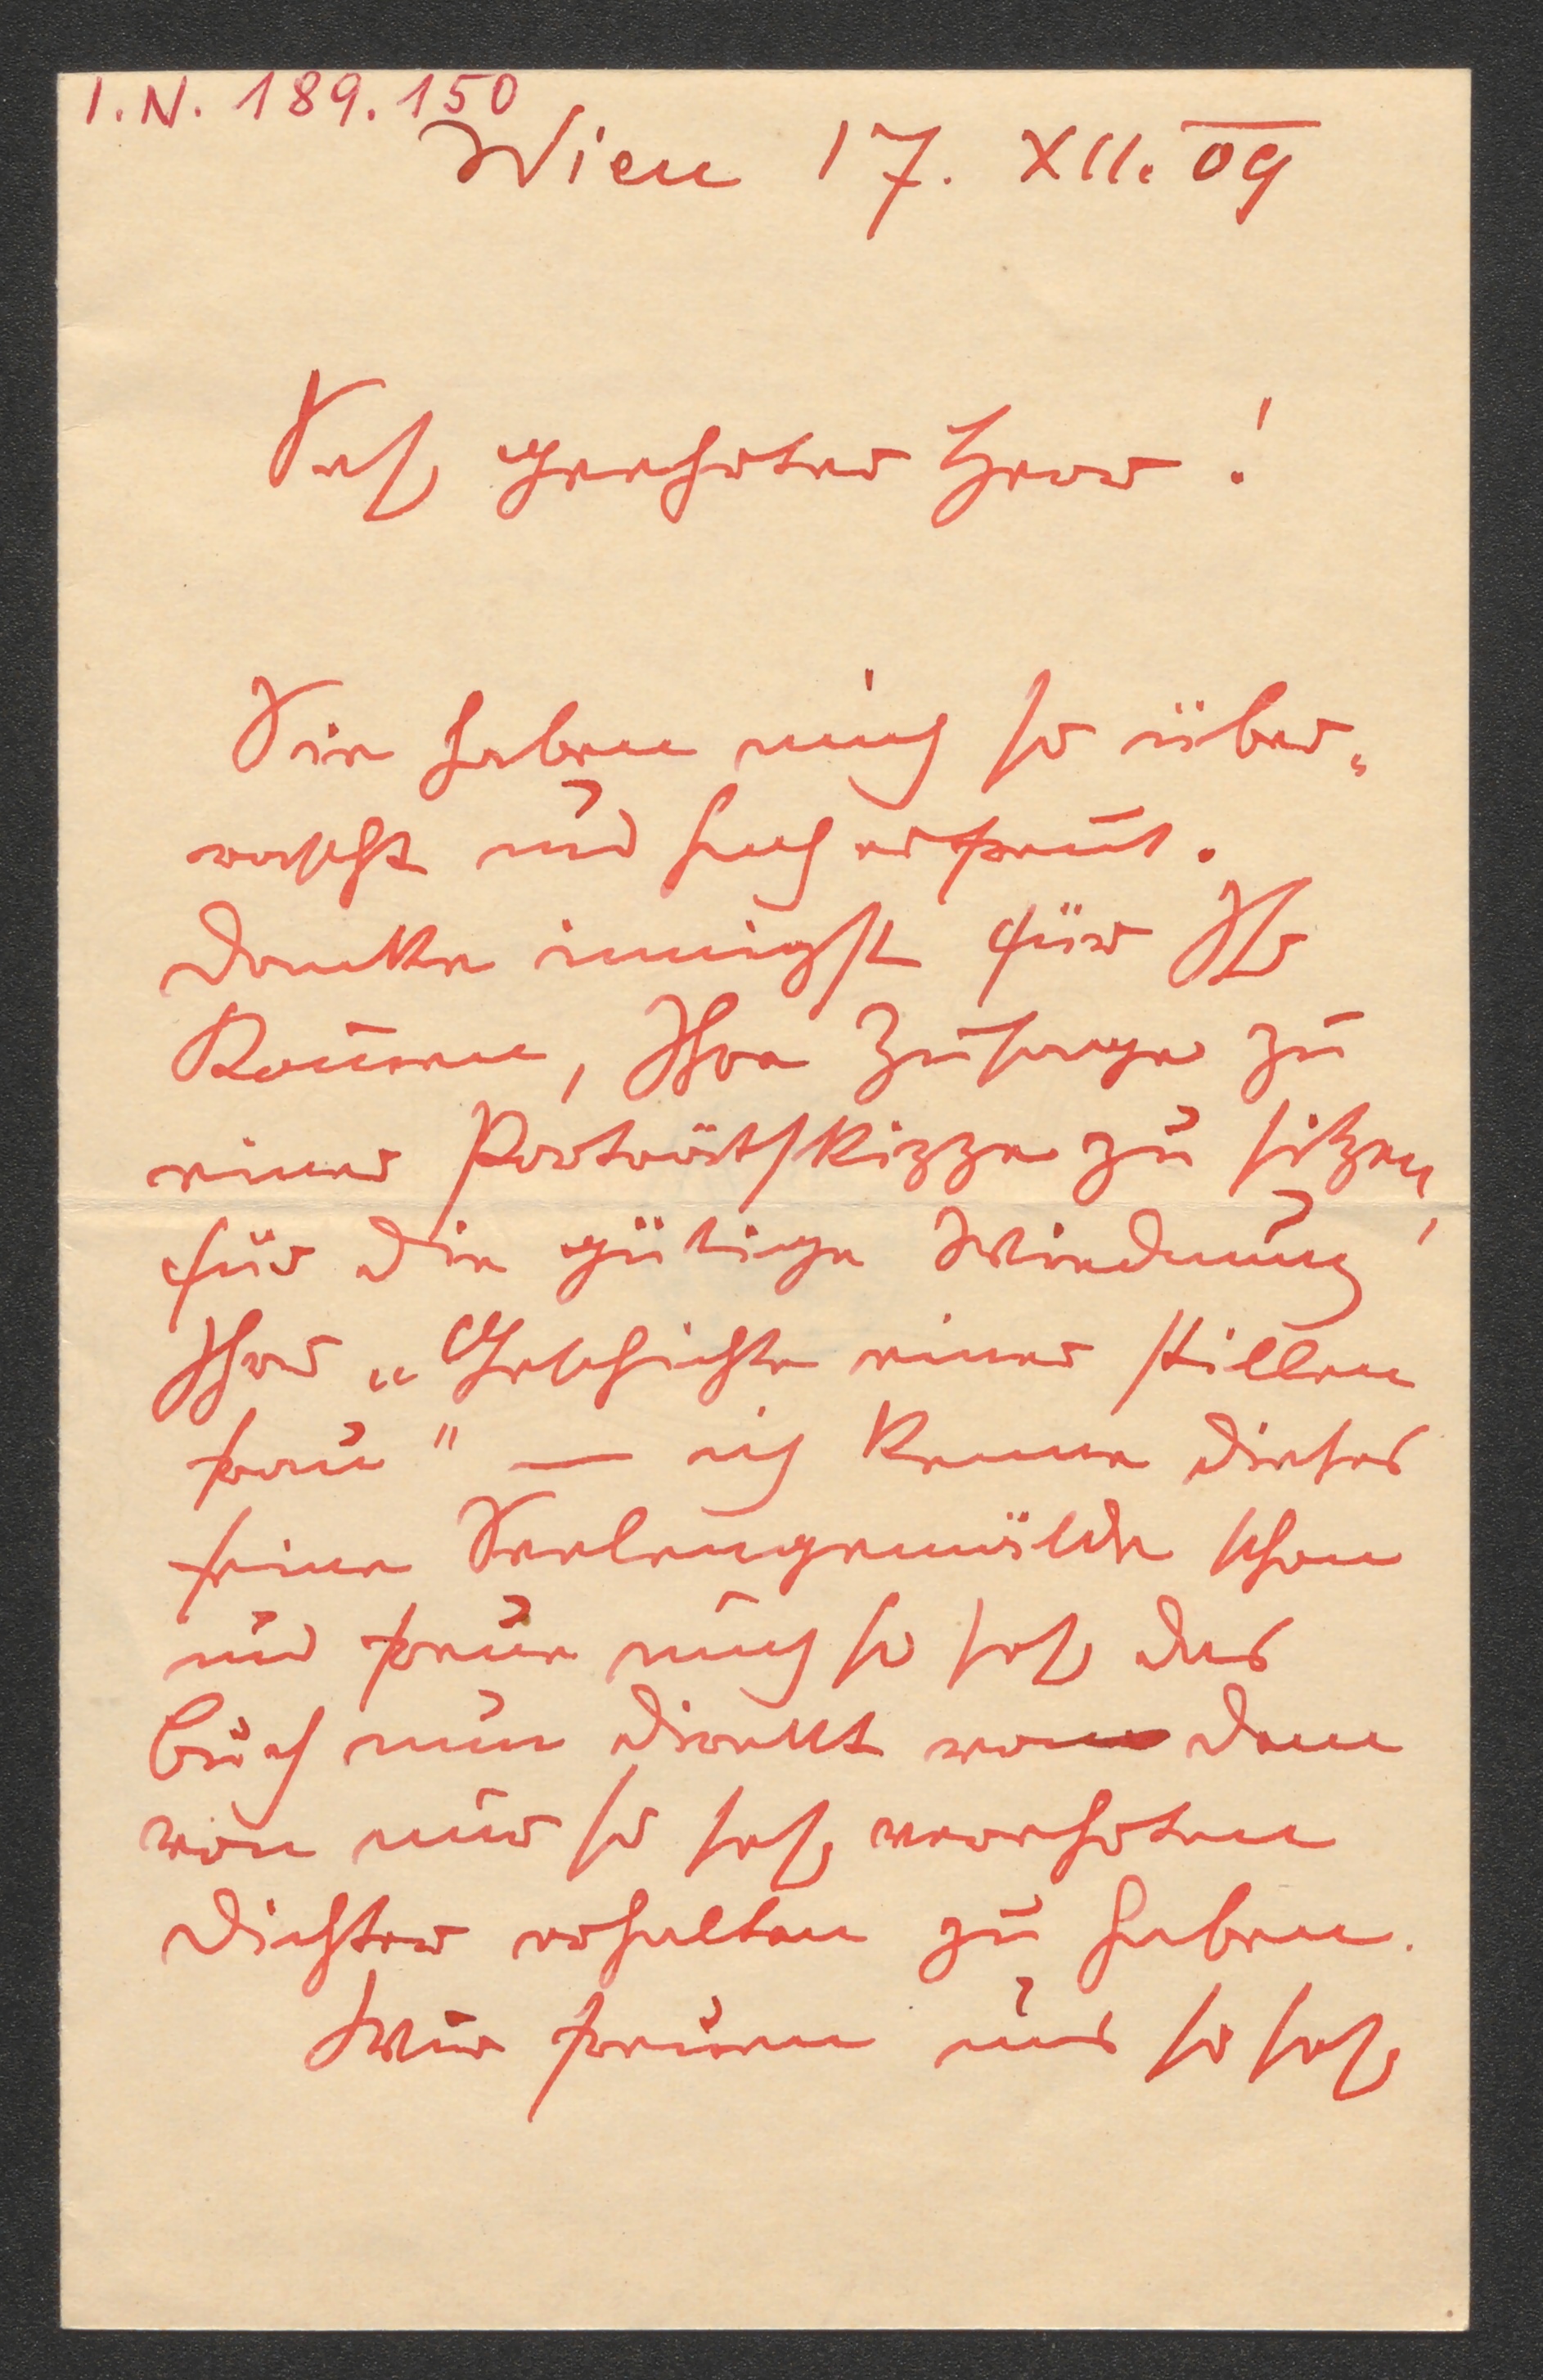 I.N. 189.150
Wien 17. XII. 09
Sehr geehrter Herr!
Sie haben mich so über-
rascht und hoch erfreut.
Danke innigst für Ihr
Kommen, Ihre Zusage zu
einer Porträtskizze zu sitzen,
für die gütige Widmung
Ihrer „Geschichte einer stillen
Frau" — ich kenne dieses
feine Seelengemälde schon
und freue mich so sehr das
Buch nun direkt von dem
von mir so sehr verehrten
Dichter erhalten zu haben.
Wir freuen uns so sehr